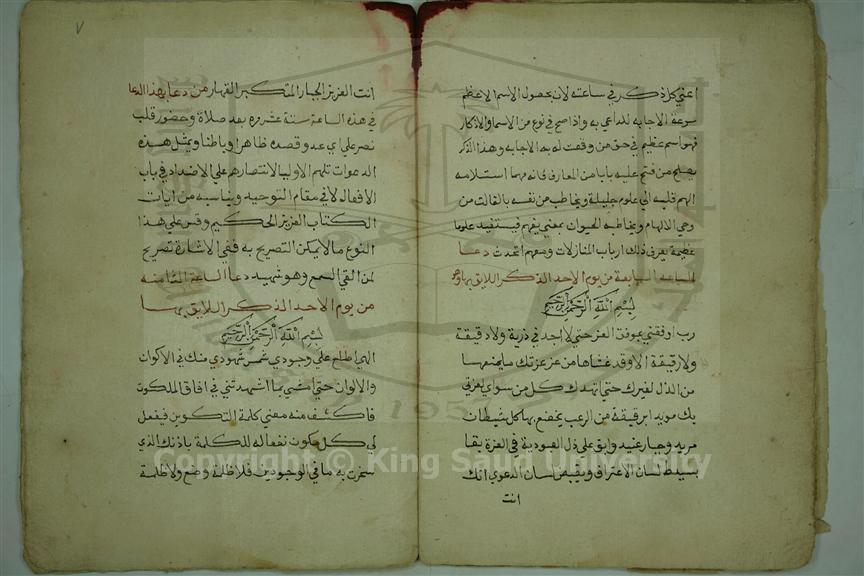 اعني كل ذكر في ساعته لان بحصول الاسم الاعظم
سرعة الاجابه للداعي به واذا صح في نوع من الاسما والاذكار
فهو اسم عظيم في حق من وقعت له به الاجابه وهذا الذكر
يصلح من فتح عليه بابا من المعارف فانه مهما استلامه
الهم قلبه الي علوم جليلة ويخاطب من نفسه بالقالت من
وحي الالهام ويخاطبه الحيوان بمعني يفهم فيستفيد علوما
عظيمة يعرف ذلك ارباب المنازلات ومعهم اتحدث دعا
الساعه السابعة من يوم الاحد الذكر اللايق بها وهو
بسم الله الرحمن الرحيم
رب اوقفني موقف العز حتي لا اجد في ذرية ولا دقيقة
ولا رقيقة الا وقد غشاها من عز عزتك ما يمنعها
من الذل لغيرك حتي اشهدك كل من سواي لعزتي
بك مويد ابرقيقة من الرعب يخضع بها كل شيطان
مريد وجبار عنيد وابق علي ذل العبودية في العزة بقا
يبسط لسان الاعتراف ويقبض لسان الدعوي انك
انت
٧
انت العزيز الجبار المتكبر القهار من دعا بهذا الدعا
في هذه الساعة ستة عشر مره بعد صلاة وحضور قلب
نصر علي اي عدو قصده ظاهرا وباطنا ويمثل هذه
الدعوات تلهم الاوليا الانتصار علي الاضداد في باب
الافعال لا في مقام التوحيد ويناسبه من ايات
الكتاب العزيز الحكيم وقس علي هذا
النوع ما لا يمكن التصريح به ففي الاشارة تصريح
لمن القي السمع وهو شهيد دعا الساعة الثامنه
من يوم الاحد الذكر اللايق بها
بسم الله الرحمن الرحيم
الهي اطلع علي وجودي شمس شهودي منك في الاكوان
والالوان حتي امشي بما اشهدتني في افاق الملكوت
فاكشف منه معني كلمة التكوين فيفعل
لي كل مكون نفعاله للكلمة باذنك الذي
سخرت به ما في الوجودين فلا ظلمة وضع ولا ظلمة
Copyright © King Saud University
195